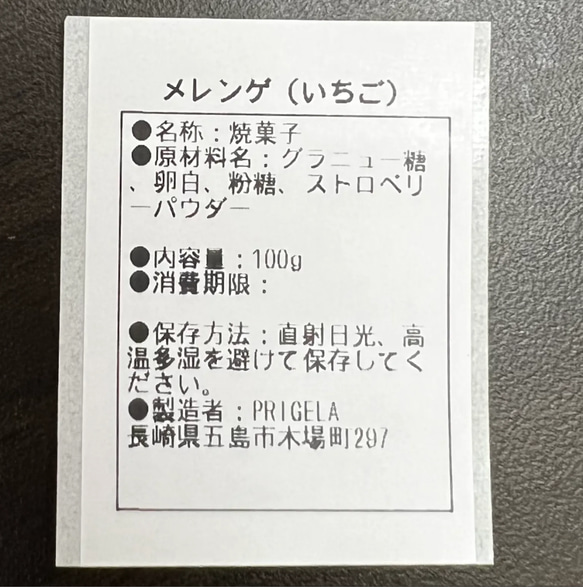 メレンゲ（いちご）
●名称：焼菓子
●原材料名：グラニュー糖
、卵白、粉糖、ストロベリ
ーパウダー
●内容量：100g
●消費期限：
●保存方法：直射日光、高
温多湿を避けて保存してく
ださい。
●製造者：PRIGELA
長崎県五島市木場町297